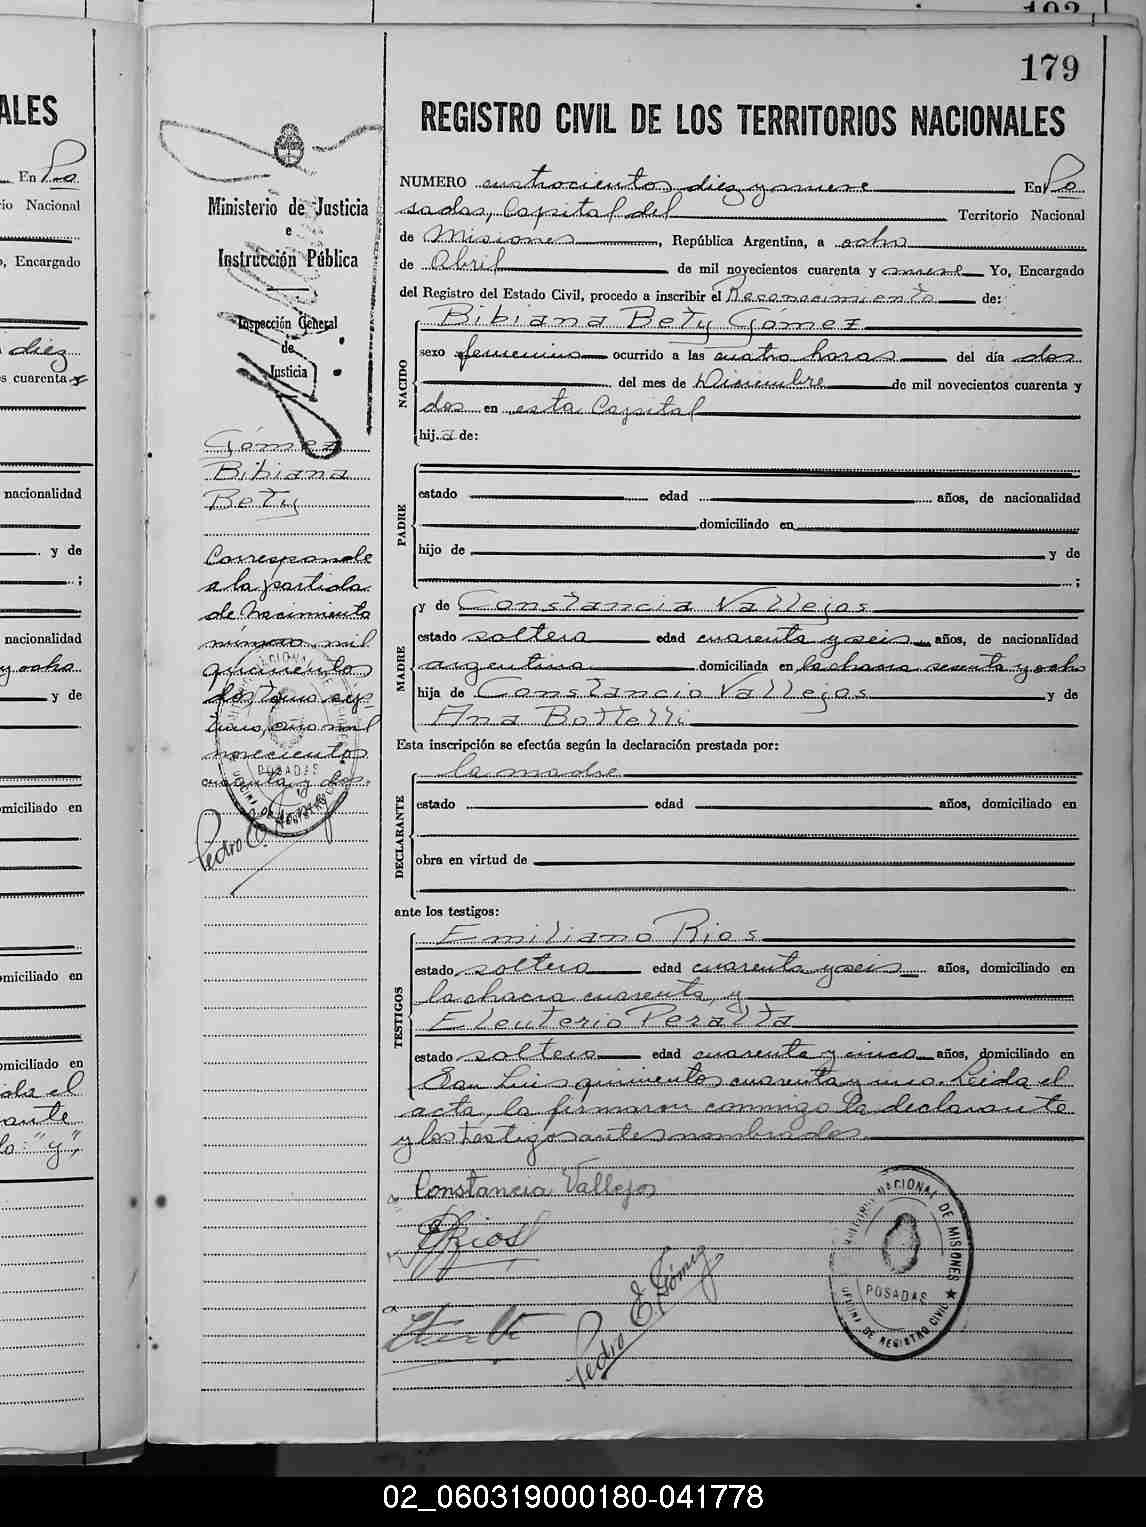 193
179
ALES
REGISTRO CIVIL DE LOS TERRITORIOS NACIONALES
En Po
io Nacional
o, Encargado
diez
s cuarenta y
nacionalidad
y de
;
nacionalidad
y ocho
y de
omiciliado en
omiciliado en
omiciliado en
ida el
ante
lo: "y",
Ministerio de Justicia
e
Instrucción Pública
Inspección General
de
Justicia
Gómez
Bibiana
Bety
Corresponde
a la partida
de Nacimiento
número mil
quinientos
año mil
novecientos
cuarenta y dos.
POSADAS
Pedro E. Gómez
NUMERO cuatrocientos diez y nueve En Po
sadas, Capital del Territorio Nacional
de Misiones, República Argentina, a ocho
de Abril de mil novecientos cuarenta y nueve Yo, Encargado
del Registro del Estado Civil, procedo a inscribir el Reconocimiento de:
NACIDO
Bibiana Bety Gómez
sexo femenino ocurrido a las cuatro horas del día dos
del mes de Diciembre de mil novecientos cuarenta y
dos en esta Capital
hija de:
PADRE
estado edad años, de nacionalidad
domiciliado en
hijo de y de
;
MADRE
y de Constancia Vallejos
estado soltera edad cuarenta y seis años, de nacionalidad
argentina domiciliada en la chacra sesenta y ocho
hija de Constancio Vallejos y de
Ana Bottelli
Esta inscripción se efectúa según la declaración prestada por:
DECLARANTE
la madre
estado edad años, domiciliado en
obra en virtud de
ante los testigos:
TESTIGOS
Emiliano Rios
estado soltero edad cuarenta y seis años, domiciliado en
la chacra cuarenta, y
Eleuterio Peralta
estado soltero edad cuarenta y cinco años, domiciliado en
San Luis quinientos cuarenta y uno. Leida el
acta, la firmaron conmigo la declarante
y los testigos antes nombrados.
Constancia Vallejos
ERios
Pedro E. Gómez
NACIONAL DE MISIONES
POSADAS
OFICINA DE REGISTRO CIVIL
02_060319000180-041778